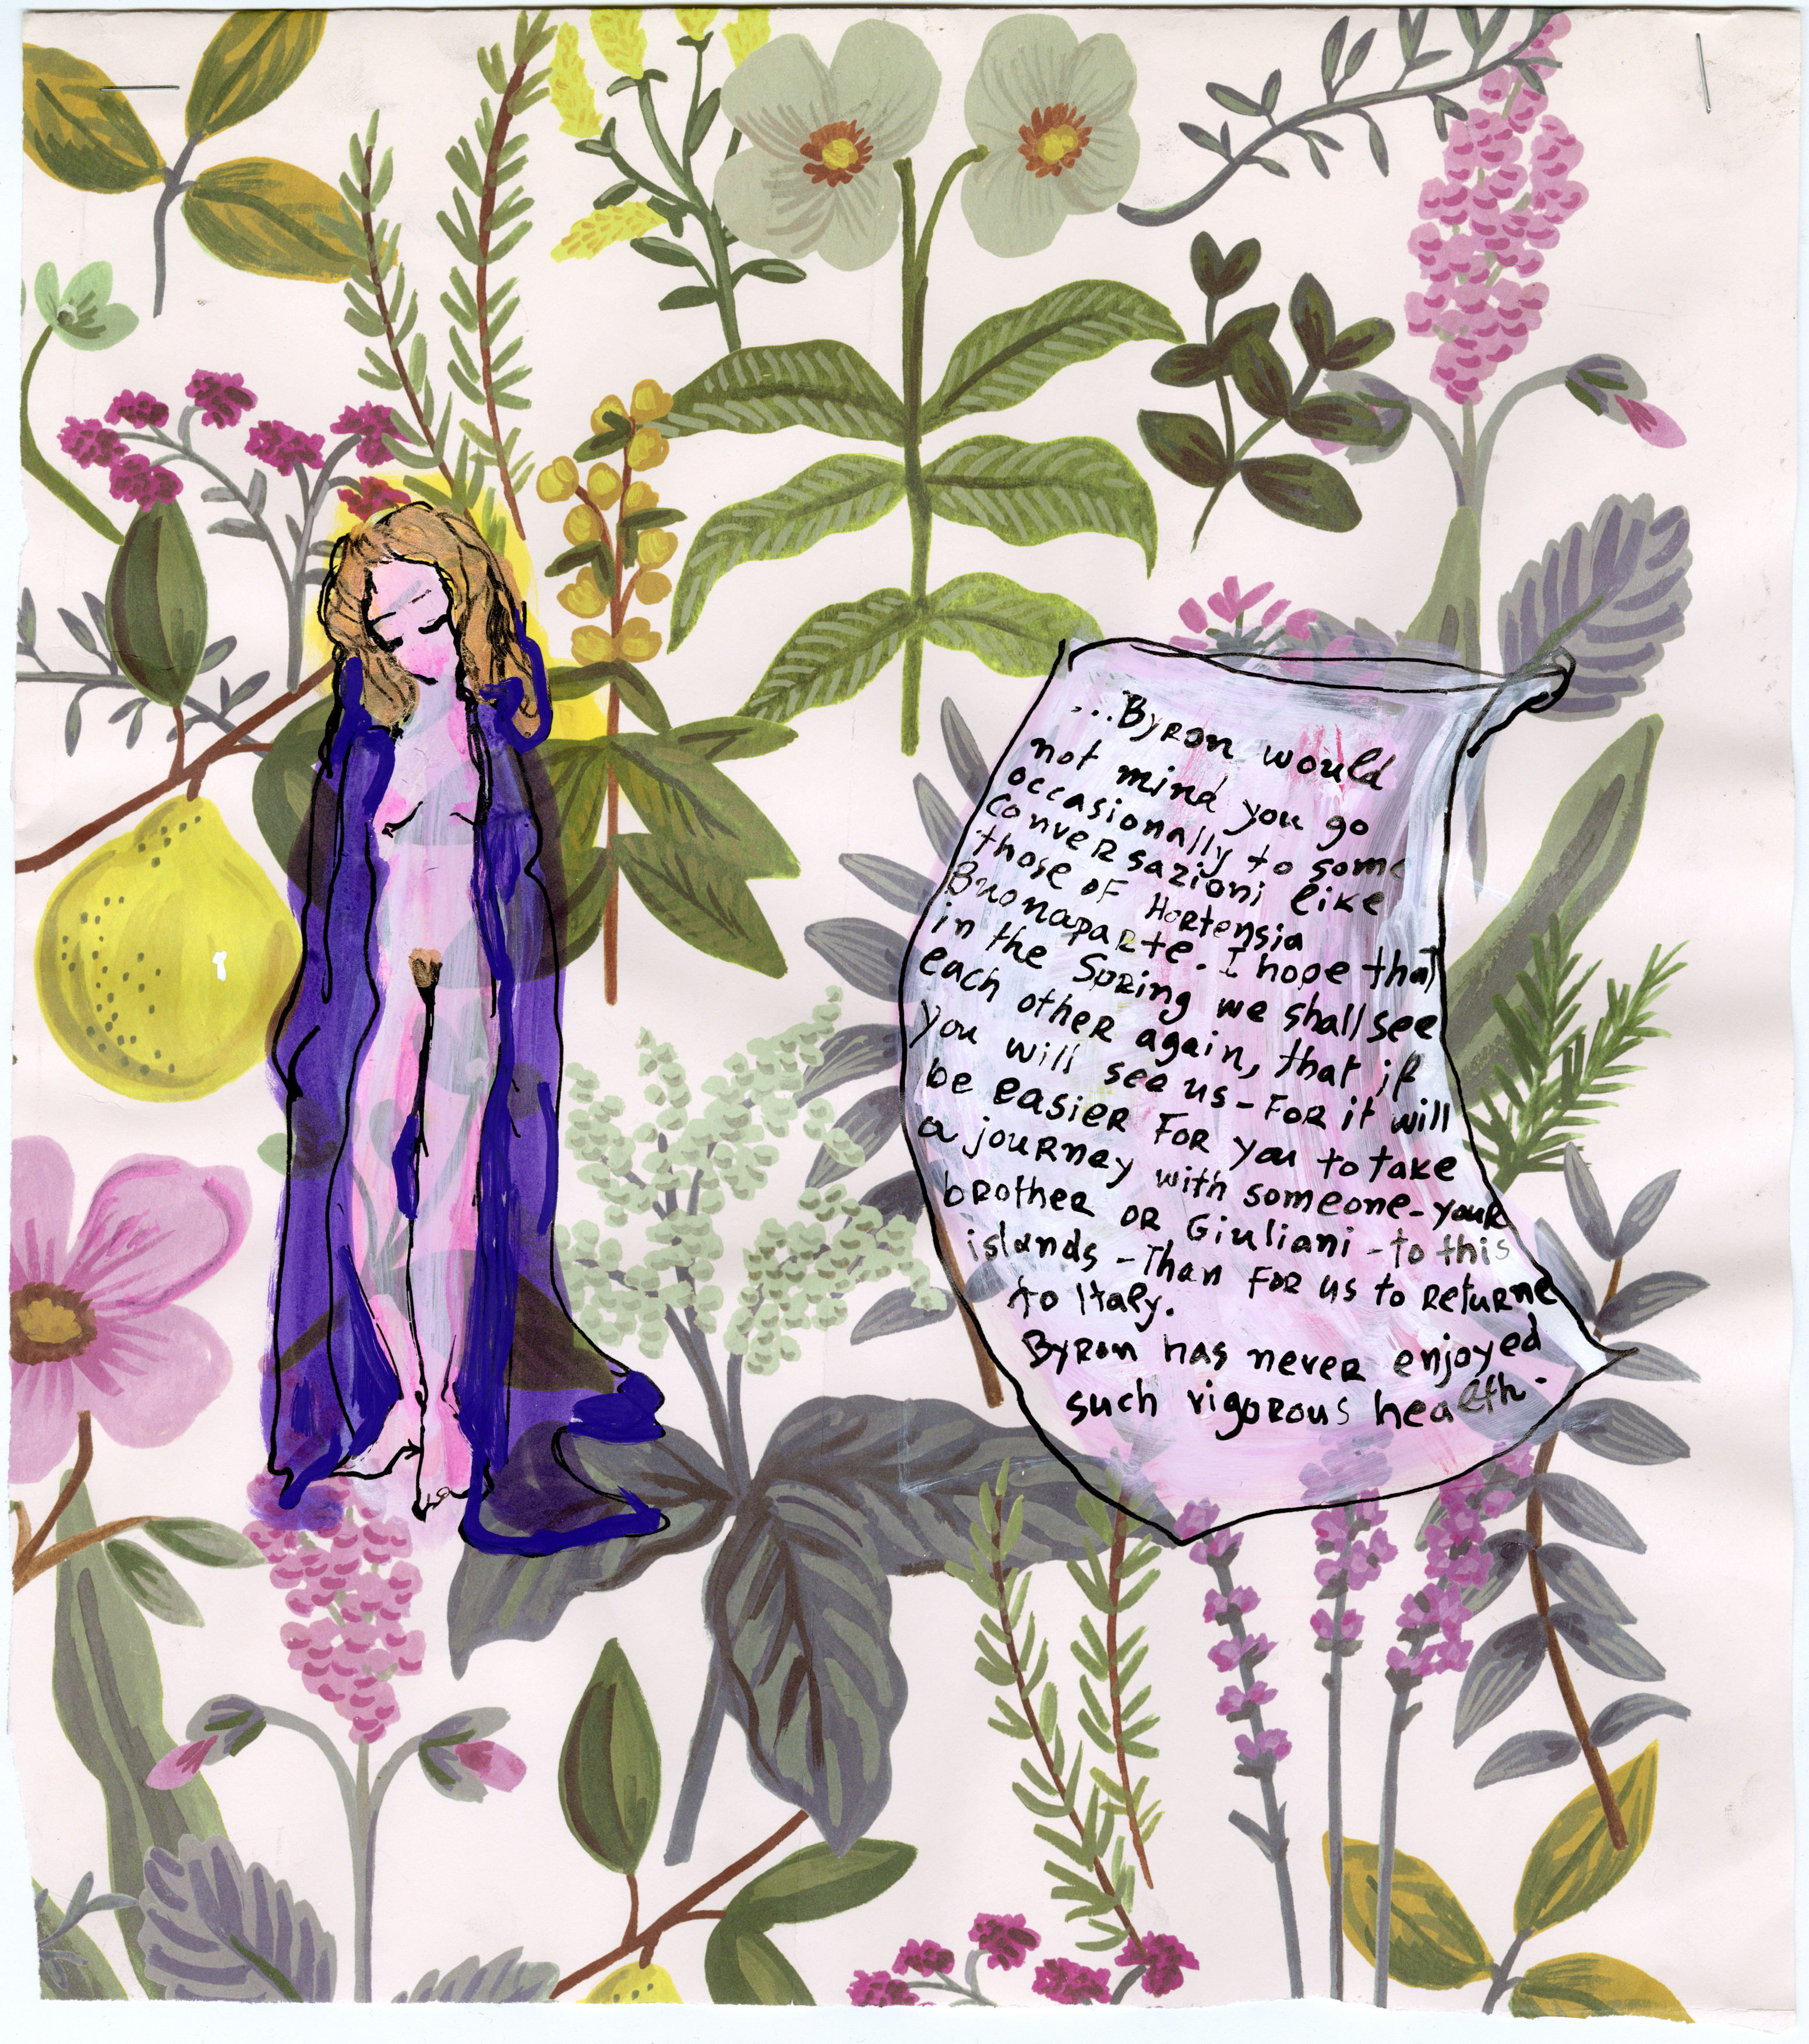 ...Byron would
not mind you go
occasionally to some
conversazioni like
those of Hortensia
Buonaparte. I hope that
in the Spring we shall see
each other again, that if
you will see us - for it will
be easier for you to take
a journey with someone - your
brother or Giuliani - to this
islands - Than for us to returne
to Italy.
Byron has never enjoyed
such vigorous health.